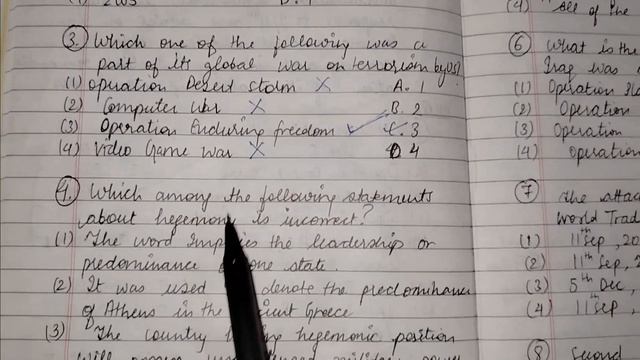 (1) 2003
(3) Which one of the following was a
part of its global war on terrorism by US?
(1) Operation Desert storm A. 1
(2) Computer war B. 2
(3) Operation Enduring freedom C. 3
(4) Video Game war D 4
(4) Which among the following statements
about hegemony is incorrect?
(1) The word implies the leadership or
predominance of one state.
(2) It was used denote the predominance
of Athens in the Ancient Greece
(3) The country hegemonic position
will
(4) All of the
(6) What is the
Iraq was
(1) Operation
(2) Operation
(3) Operation
(4) Operation
(7) The attac
World Trad
(1) 11th Sep, 20
(2) 11th Sep, 2
(3) 5th Dec,
(4) 11th Sep,
(8) Second